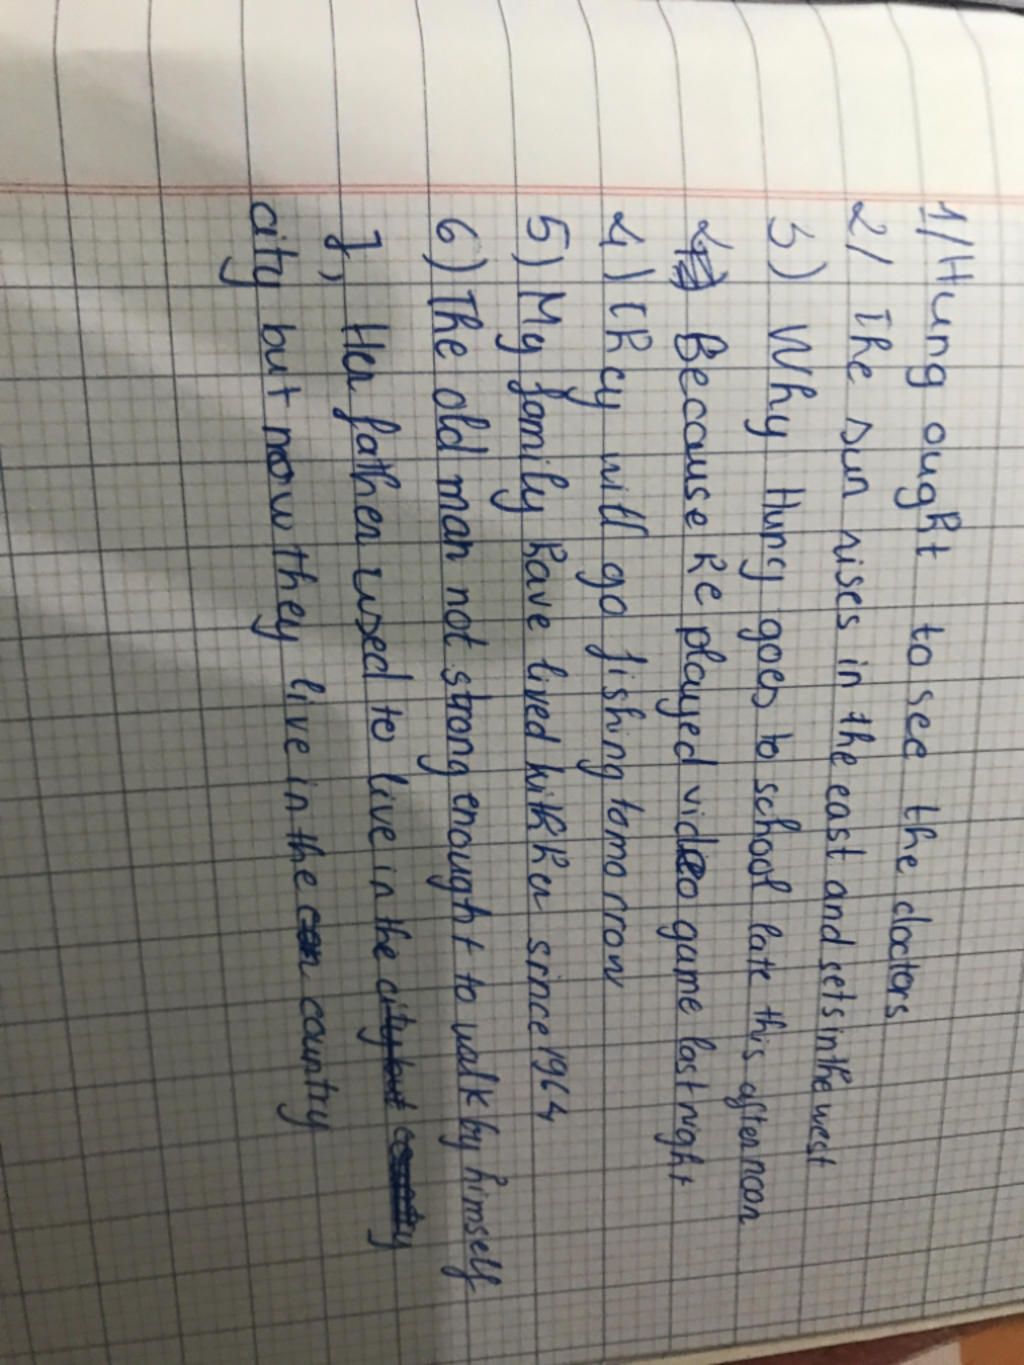 1/ Hung ought to see the doctors
2/ The sun rises in the east and sets in the west
3) Why Hung goes to school late this afternoon
Because he played video game last night
4) They will go fishing tomorrow
5) My family have lived hither since 1964
6) The old man not strong enought to walk by himself
7, Her father used to live in the city but
city but now they live in the country